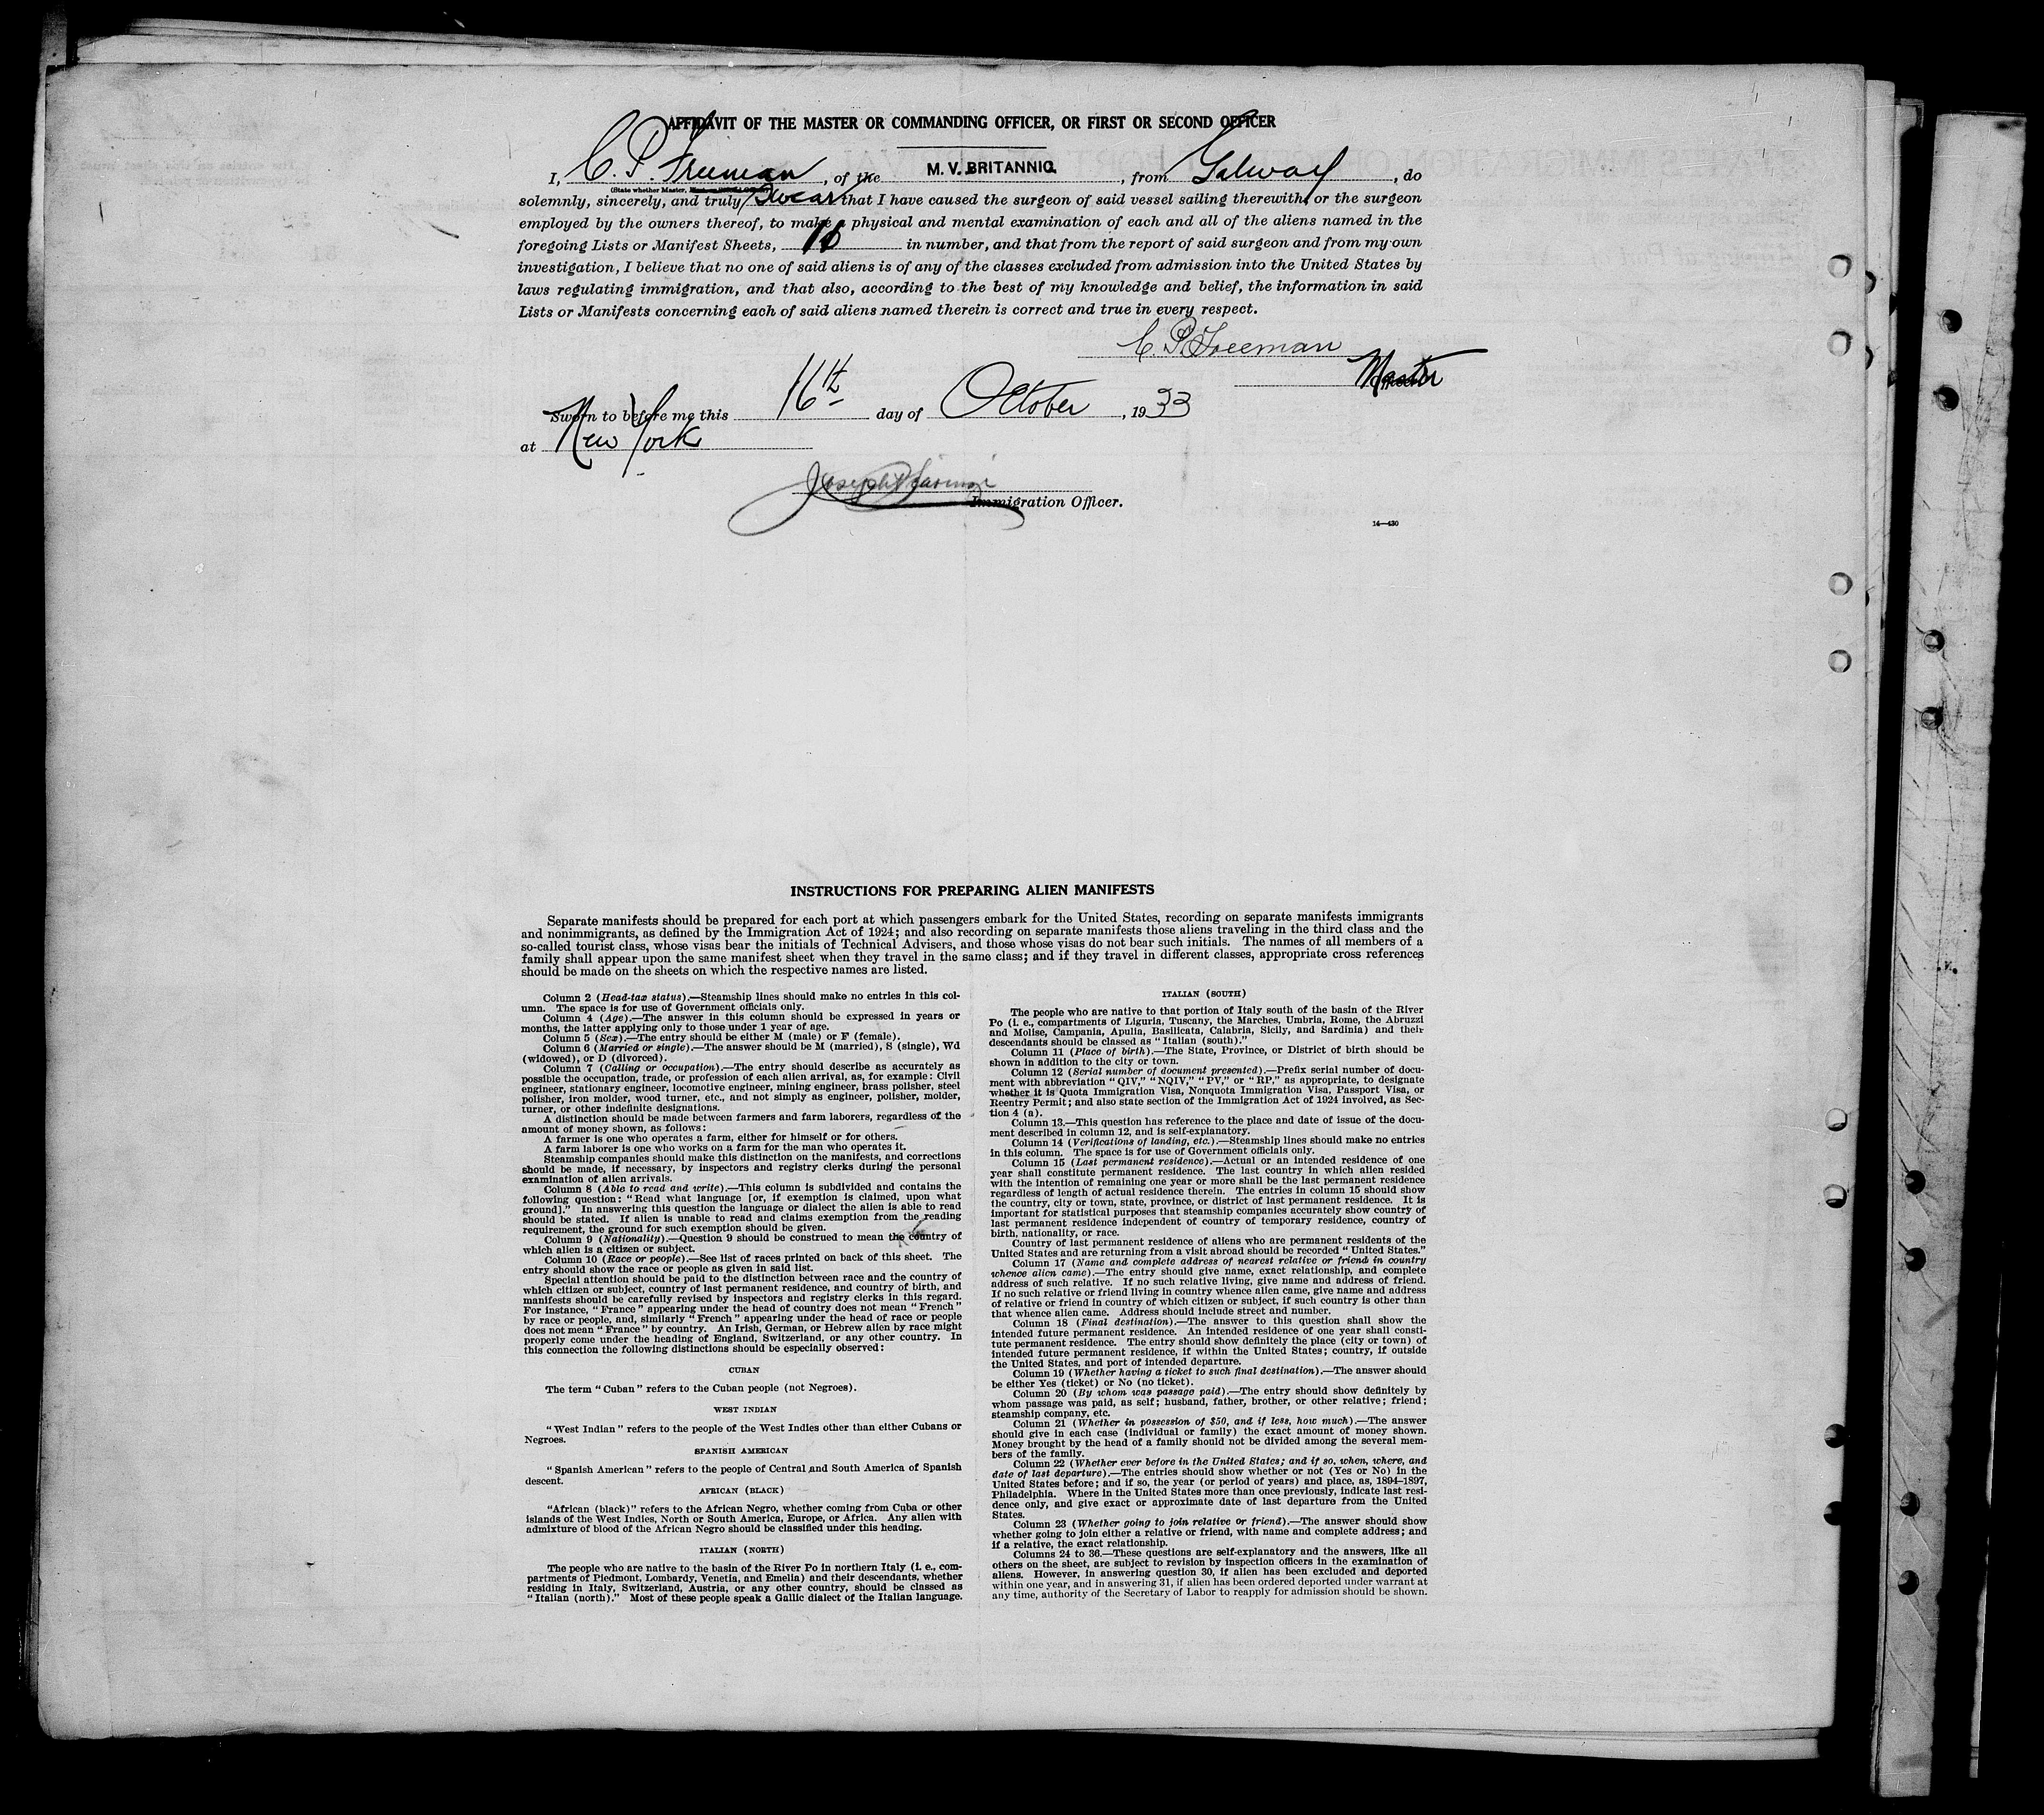 AFFIDAVIT OF THE MASTER OR COMMANDING OFFICER, OR FIRST OR SECOND OFFICER
I, C. P. Freeman, of the M. V. BRITANNIC, from Galway, do
(State whether Master,
solemnly, sincerely, and truly Swear that I have caused the surgeon of said vessel sailing therewith, or the surgeon
employed by the owners thereof, to make a physical and mental examination of each and all of the aliens named in the
foregoing Lists or Manifest Sheets, 16 in number, and that from the report of said surgeon and from my own
investigation, I believe that no one of said aliens is of any of the classes excluded from admission into the United States by
laws regulating immigration, and that also, according to the best of my knowledge and belief, the information in said
Lists or Manifests concerning each of said aliens named therein is correct and true in every respect.
C. P. Freeman
Master
Sworn to before me this 16th day of October, 1933
at New York
Joseph
Immigration Officer.
14—430
INSTRUCTIONS FOR PREPARING ALIEN MANIFESTS
Separate manifests should be prepared for each port at which passengers embark for the United States, recording on separate manifests immigrants
and nonimmigrants, as defined by the Immigration Act of 1924; and also recording on separate manifests those aliens traveling in the third class and the
so-called tourist class, whose visas bear the initials of Technical Advisers, and those whose visas do not bear such initials. The names of all members of a
family shall appear upon the same manifest sheet when they travel in the same class; and if they travel in different classes, appropriate cross references
should be made on the sheets on which the respective names are listed.
Column 2 (Head-tax status).—Steamship lines should make no entries in this col-
umn. The space is for use of Government officials only.
Column 4 (Age).—The answer in this column should be expressed in years or
months, the latter applying only to those under 1 year of age.
Column 5 (Sex).—The entry should be either M (male) or F (female).
Column 6 (Married or single).—The answer should be M (married), S (single), Wd
(widowed), or D (divorced).
Column 7 (Calling or occupation).—The entry should describe as accurately as
possible the occupation, trade, or profession of each alien arrival, as, for example: Civil
engineer, stationary engineer, locomotive engineer, mining engineer, brass polisher, steel
polisher, iron molder, wood turner, etc., and not simply as engineer, polisher, molder,
turner, or other indefinite designations.
A distinction should be made between farmers and farm laborers, regardless of the
amount of money shown, as follows:
A farmer is one who operates a farm, either for himself or for others.
A farm laborer is one who works on a farm for the man who operates it.
Steamship companies should make this distinction on the manifests, and corrections
should be made, if necessary, by inspectors and registry clerks during the personal
examination of alien arrivals.
Column 8 (Able to read and write).—This column is subdivided and contains the
following question: "Read what language [or, if exemption is claimed, upon what
ground]." In answering this question the language or dialect the alien is able to read
should be stated. If alien is unable to read and claims exemption from the reading
requirement, the ground for such exemption should be given.
Column 9 (Nationality).—Question 9 should be construed to mean the country of
which alien is a citizen or subject.
Column 10 (Race or people).—See list of races printed on back of this sheet. The
entry should show the race or people as given in said list.
Special attention should be paid to the distinction between race and the country of
which citizen or subject, country of last permanent residence, and country of birth, and
manifests should be carefully revised by inspectors and registry clerks in this regard.
For instance, "France" appearing under the head of country does not mean "French"
by race or people, and, similarly "French" appearing under the head of race or people
does not mean "France" by country. An Irish, German, or Hebrew alien by race might
properly come under the heading of England, Switzerland, or any other country. In
this connection the following distinctions should be especially observed:
CUBAN
The term "Cuban" refers to the Cuban people (not Negroes).
WEST INDIAN
"West Indian" refers to the people of the West Indies other than either Cubans or
Negroes.
SPANISH AMERICAN
"Spanish American" refers to the people of Central and South America of Spanish
descent.
AFRICAN (BLACK)
"African (black)" refers to the African Negro, whether coming from Cuba or other
islands of the West Indies, North or South America, Europe, or Africa. Any alien with
admixture of blood of the African Negro should be classified under this heading.
ITALIAN (NORTH)
The people who are native to the basin of the River Po in northern Italy (i. e., com-
partments of Piedmont, Lombardy, Venetia, and Emelia) and their descendants, whether
residing in Italy, Switzerland, Austria, or any other country, should be classed as
"Italian (north)." Most of these people speak a Gallic dialect of the Italian language.
ITALIAN (SOUTH)
The people who are native to that portion of Italy south of the basin of the River
Po (i. e., compartments of Liguria, Tuscany, the Marches, Umbria, Rome, the Abruzzi
and Molise, Campania, Apulia, Basilicata, Calabria, Sicily, and Sardinia) and their
descendants should be classed as "Italian (south)."
Column 11 (Place of birth).—The State, Province, or District of birth should be
shown in addition to the city or town.
Column 12 (Serial number of document presented).—Prefix serial number of docu-
ment with abbreviation "QIV," "NQIV," "PV," or "RP," as appropriate, to designate
whether it is Quota Immigration Visa, Nonquota Immigration Visa, Passport Visa, or
Reentry Permit; and also state section of the Immigration Act of 1924 involved, as Sec-
tion 4 (a).
Column 13.—This question has reference to the place and date of issue of the docu-
ment described in column 12, and is self-explanatory.
Column 14 (Verifications of landing, etc.).—Steamship lines should make no entries
in this column. The space is for use of Government officials only.
Column 15 (Last permanent residence).—Actual or an intended residence of one
year shall constitute permanent residence. The last country in which alien resided
with the intention of remaining one year or more shall be the last permanent residence
regardless of length of actual residence therein. The entries in column 15 should show
the country, city or town, state, province, or district of last permanent residence. It is
important for statistical purposes that steamship companies accurately show country of
last permanent residence independent of country of temporary residence, country of
birth, nationality, or race.
Country of last permanent residence of aliens who are permanent residents of the
United States and are returning from a visit abroad should be recorded "United States."
Column 17 (Name and complete address of nearest relative or friend in country
whence alien came).—The entry should give name, exact relationship, and complete
address of such relative. If no such relative living, give name and address of friend.
If no such relative or friend living in country whence alien came, give name and address
of relative or friend in country of which citizen or subject, if such country is other than
that whence alien came. Address should include street and number.
Column 18 (Final destination).—The answer to this question shall show the
intended future permanent residence. An intended residence of one year shall consti-
tute permanent residence. The entry should show definitely the place (city or town) of
intended future permanent residence, if within the United States; country, if outside
the United States, and port of intended departure.
Column 19 (Whether having a ticket to such final destination).—The answer should
be either Yes (ticket) or No (no ticket).
Column 20 (By whom was passage paid).—The entry should show definitely by
whom passage was paid, as self; husband, father, brother, or other relative; friend;
steamship company, etc.
Column 21 (Whether in possession of $50, and if less, how much).—The answer
should give in each case (individual or family) the exact amount of money shown.
Money brought by the head of a family should not be divided among the several mem-
bers of the family.
Column 22 (Whether ever before in the United States; and if so, when, where, and
date of last departure).—The entries should show whether or not (Yes or No) in the
United States before; and if so, the year (or period of years) and place, as, 1894–1897,
Philadelphia. Where in the United States more than once previously, indicate last resi-
dence only, and give exact or approximate date of last departure from the United
States.
Column 23 (Whether going to join relative or friend).—The answer should show
whether going to join either a relative or friend, with name and complete address; and
if a relative, the exact relationship.
Columns 24 to 36.—These questions are self-explanatory and the answers, like all
others on the sheet, are subject to revision by inspection officers in the examination of
aliens. However, in answering question 30, if alien has been excluded and deported
within one year, and in answering 31, if alien has been ordered deported under warrant at
any time, authority of the Secretary of Labor to reapply for admission should be shown.